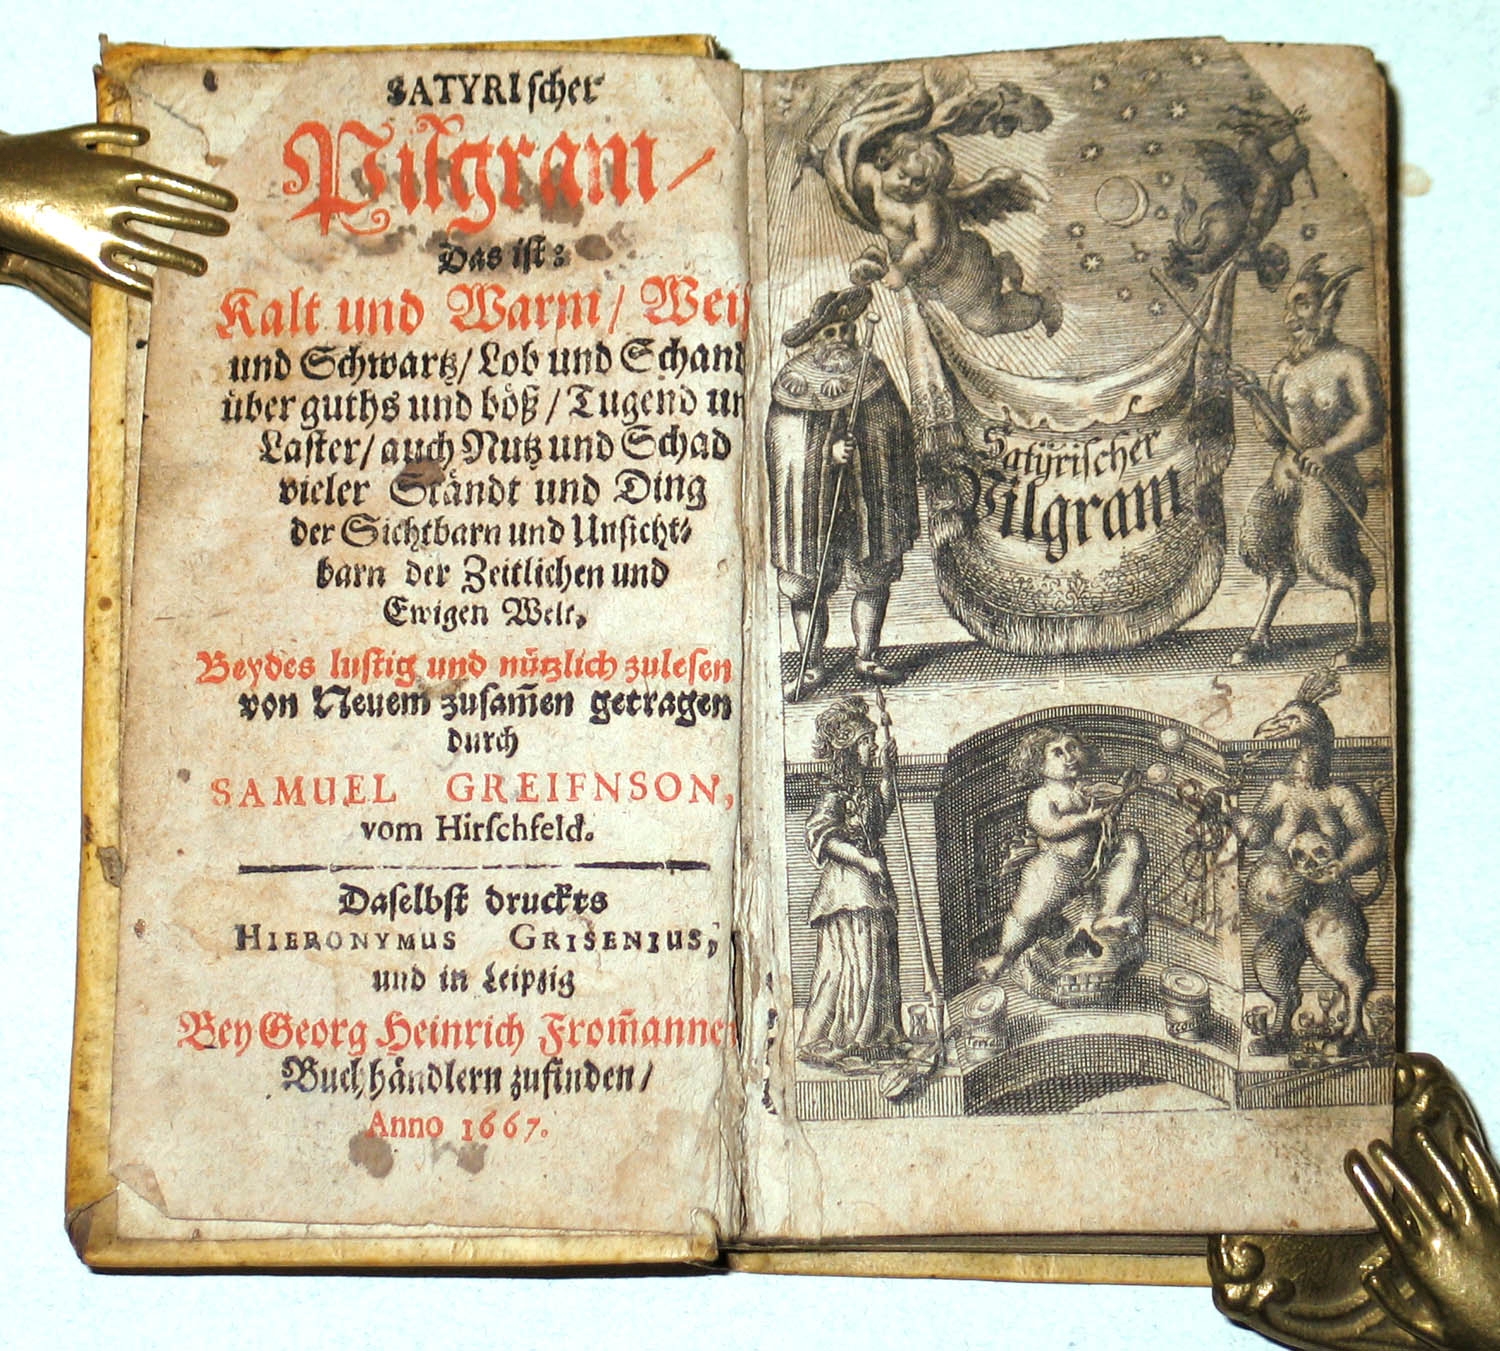 SATYRIscher
Pilgram /
Das ist:
Kalt und Warm / Weiß
und Schwartz / Lob und Schand
über guths und böß / Tugend un
Laster / auch Nutz und Schad
vieler Ständt und Ding
der Sichtbarn und Unsicht⸗
barn der Zeitlichen und
Ewigen Welt.
Beydes lustig und nützlich zulesen
von Neuem zusam̄en getragen
durch
SAMUEL GREIFNSON,
vom Hirschfeld.
Daselbst druckts
HIERONYMUS GRISENIUS,
und in Leipzig
Bey Georg Heinrich From̄anne
Buchhändlern zufinden /
Anno 1667.
Satyrischer
Pilgram